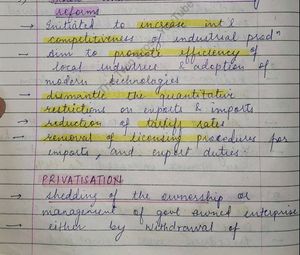 reforms
→ Initiated to increase int'l
competitiveness of industrial prodn
→ Aim to promote efficiency of
local industries & adoption of
modern technologies
→ dismantle the quantitative
restrictions on exports & imports
→ reduction of tariff rates
→ removal of licensing procedures for
imports, and export duties.
PRIVATISATION
→ shedding of the ownership or
management of govt owned enterprise
→ either by withdrawal of